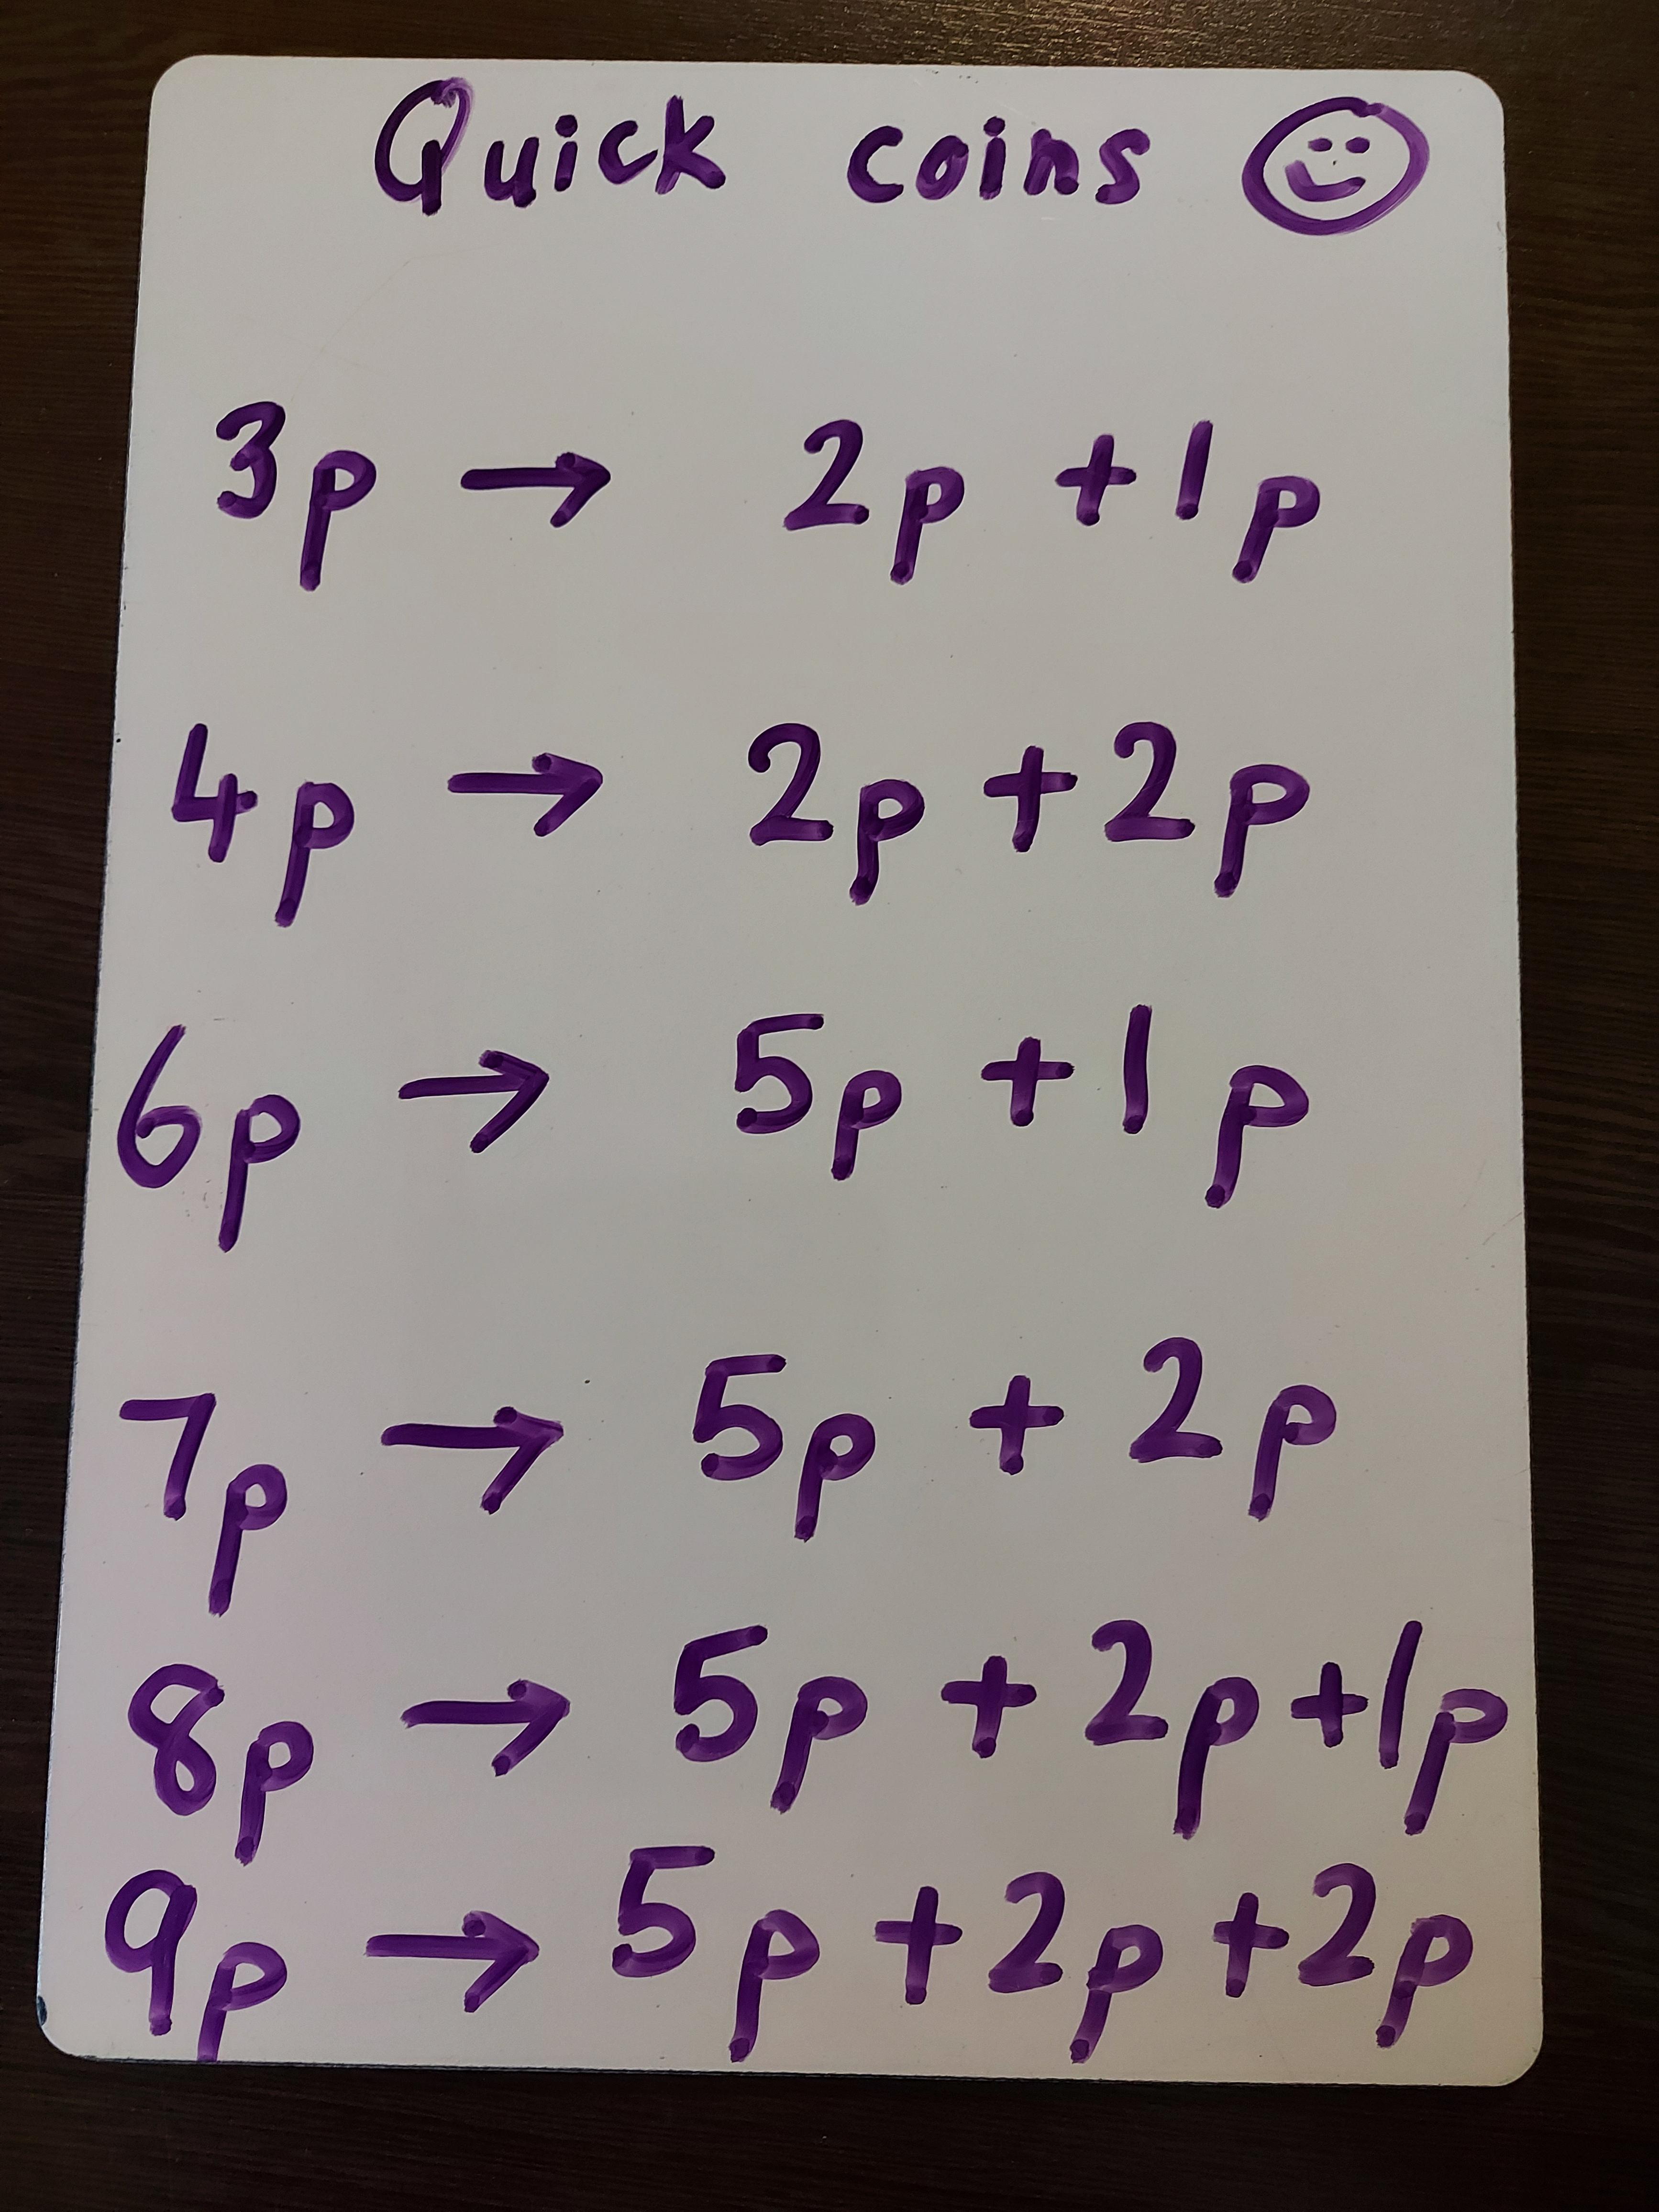 Quick coins
3p → 2p + 1p
4p → 2p + 2p
6p → 5p + 1p
7p → 5p + 2p
8p → 5p + 2p + 1p
9p → 5p + 2p + 2p